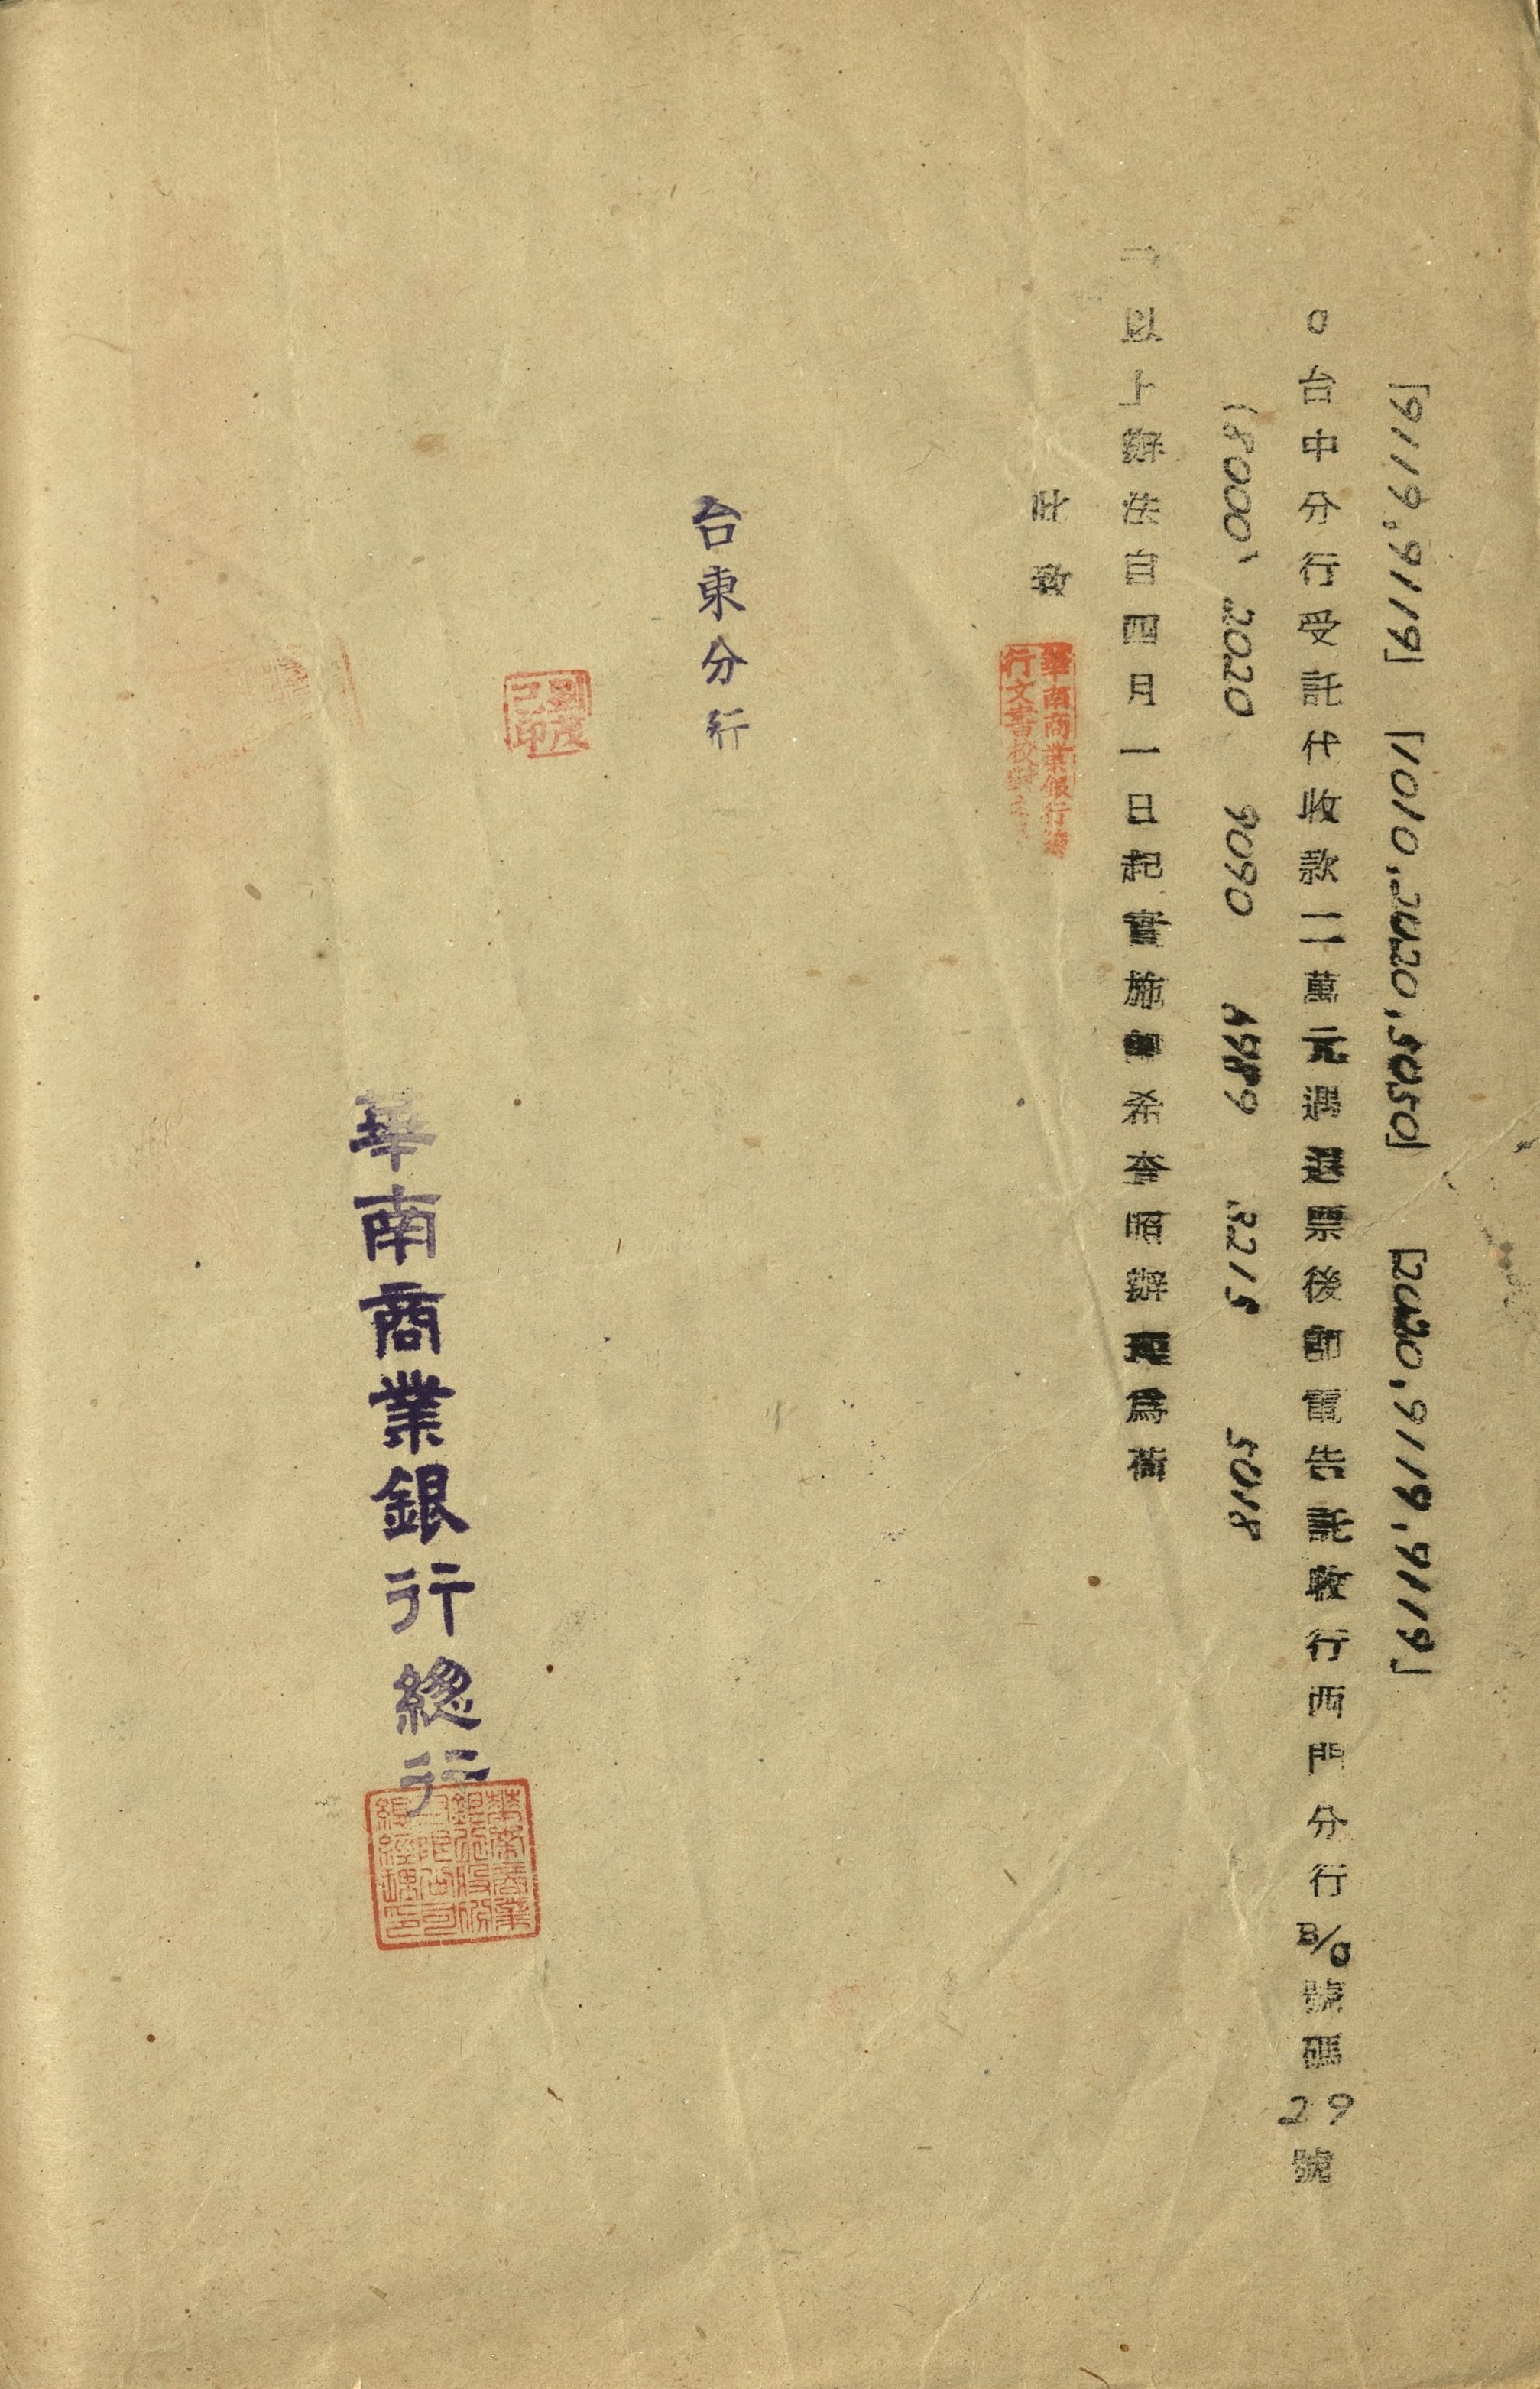 [9119,9119] [1010,2020,5050] [2020,9119,9119]
0台中分行受託代收款二萬元遇退票後卽電告託收行西門分行B/O號碼29號
(8000、2020 9090 6989 3215 5018
以上辦法自四月一日起實施卽希查照辦理爲荷
此致
華南商業銀行總
行文書校對
台東分行
華南商業銀行總行
華南商業
銀行股份
有限公司
總經理印